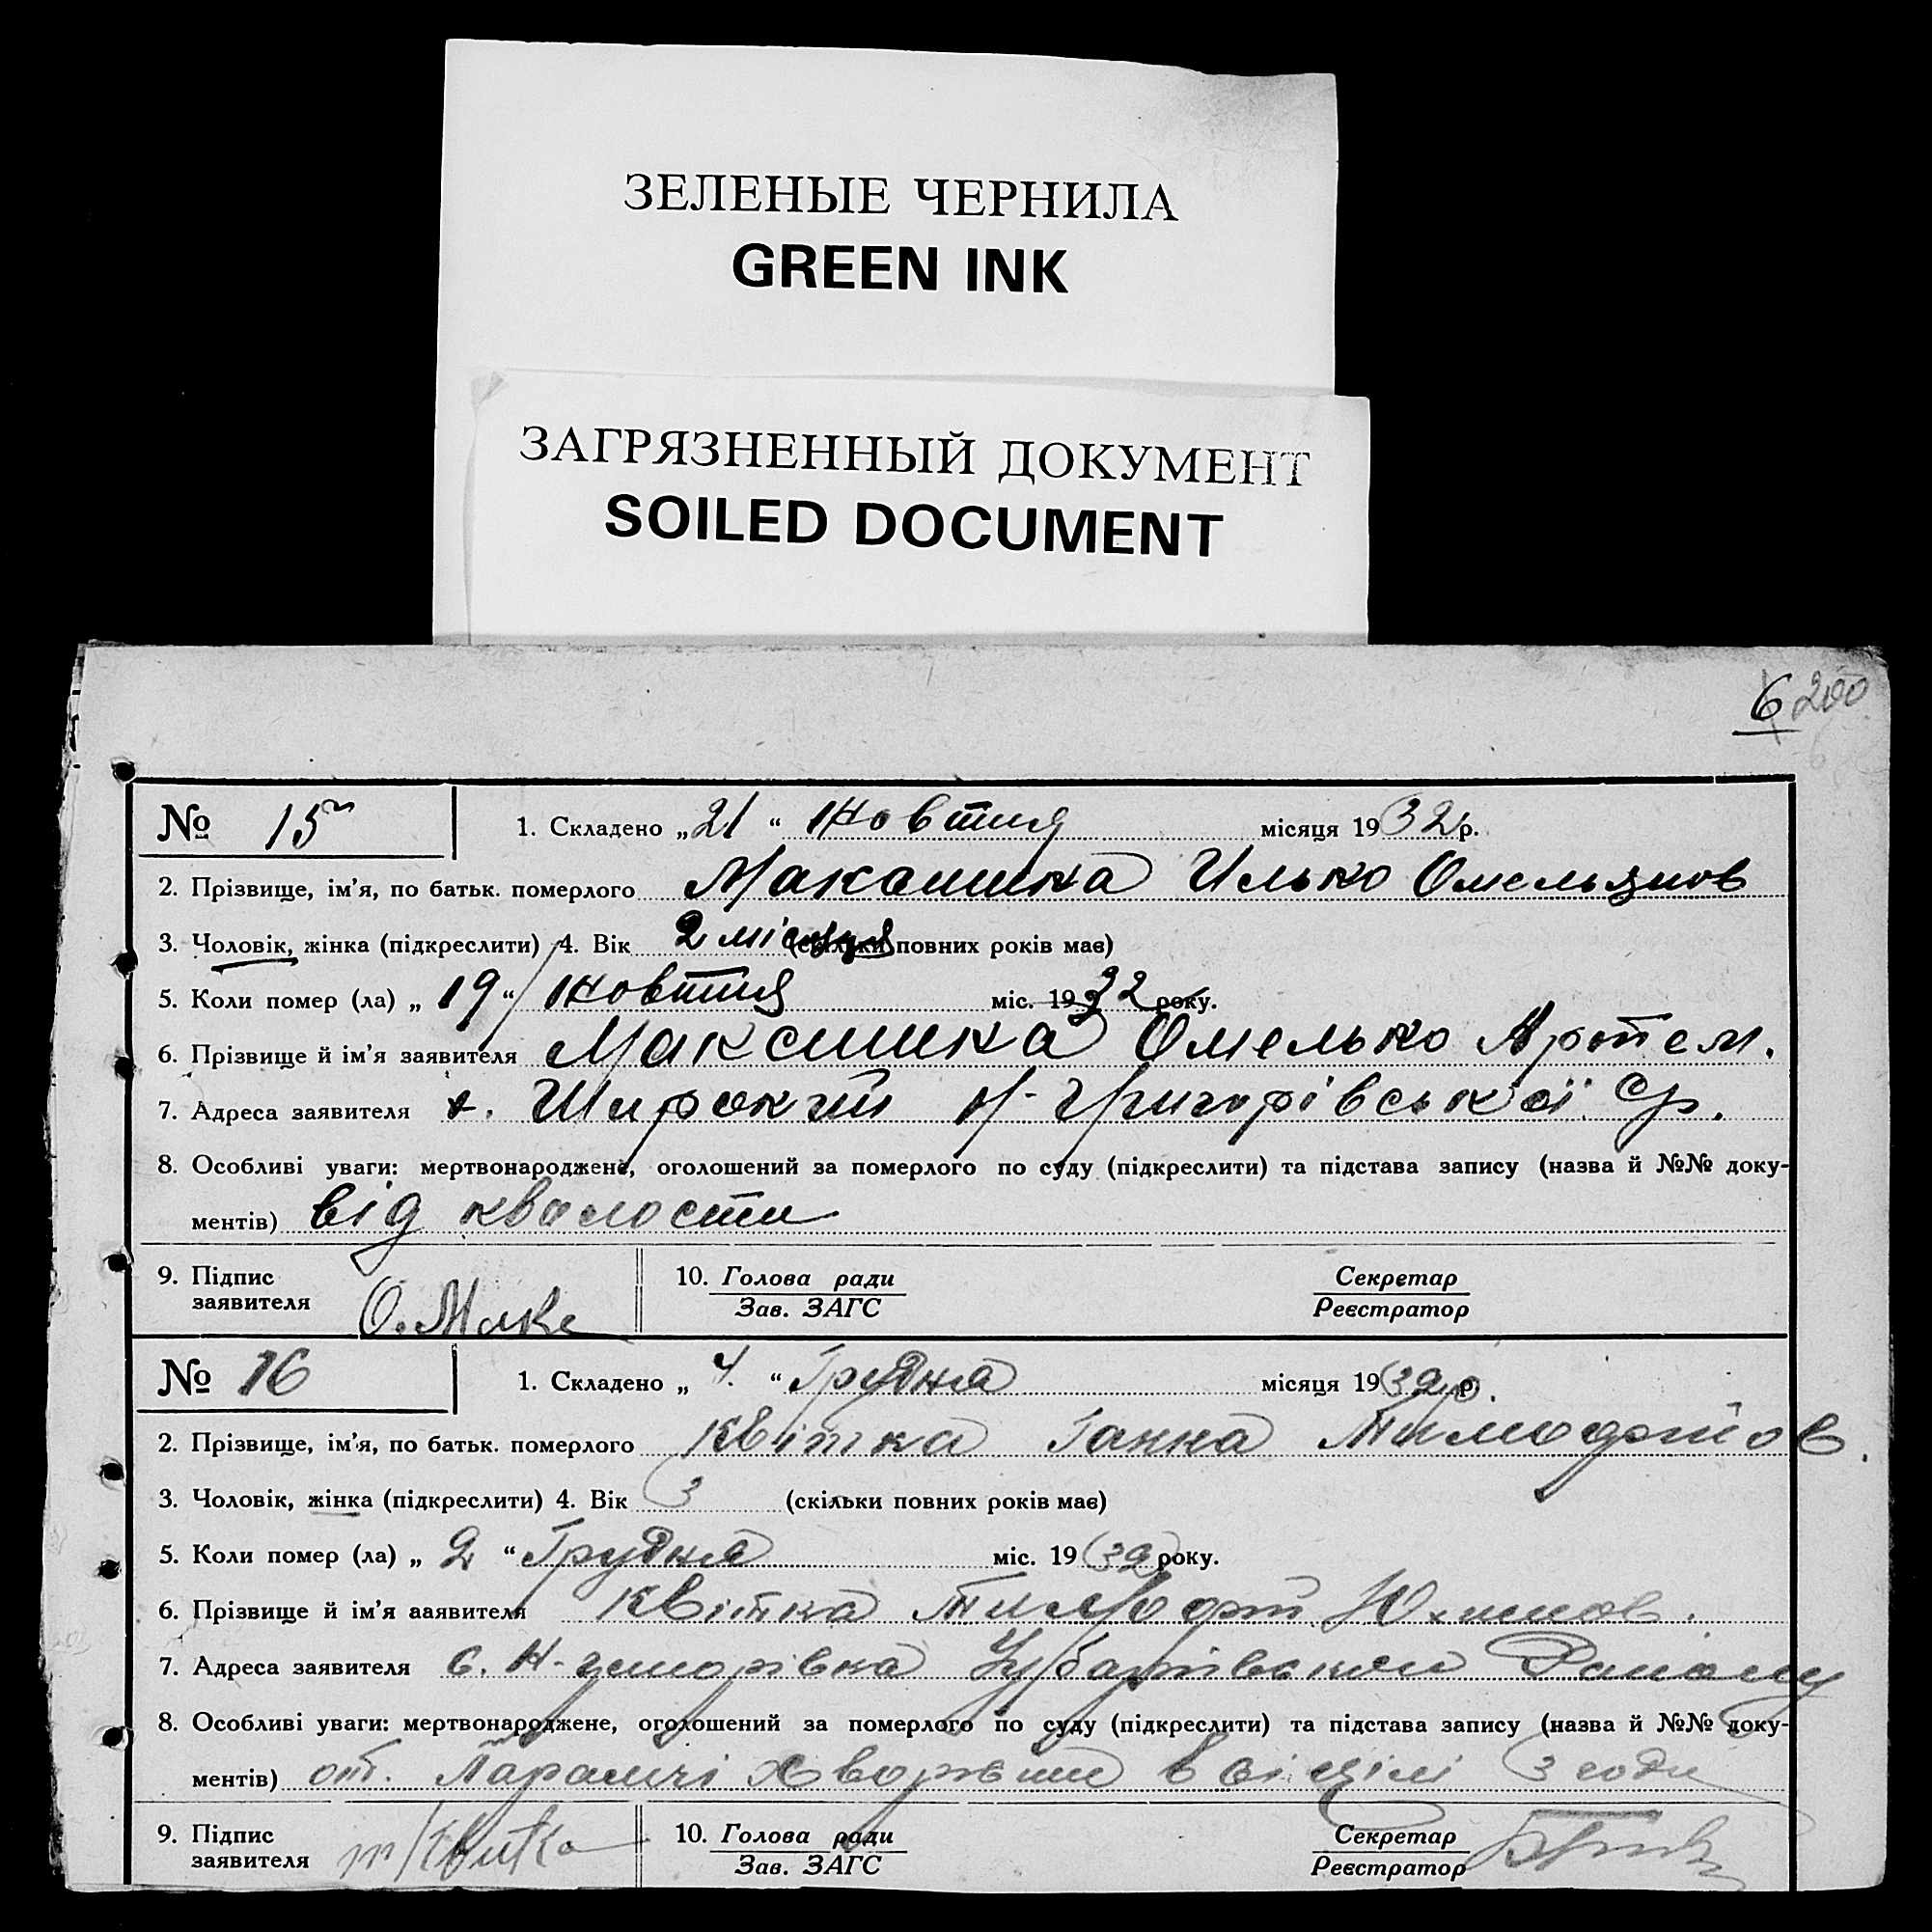 ЗЕЛЕНЫЕ ЧЕРНИЛА
GREEN INK
ЗАГРЯЗНЕННЫЙ ДОКУМЕНТ
SOILED DOCUMENT
6 200
№ 15 1. Складено „21“ жовтня місяця 1932 р.
2. Прізвище, ім’я, по батьк. померлого Максимка Илько Омельянов
3. Чоловік, жінка (підкреслити) 4. Вік 2 місяця (скільки повних років має)
5. Коли помер (ла) „19“ жовтня міс. 1932 року.
6. Прізвище й ім’я заявителя Максимка Омелько Артем.
7. Адреса заявителя х. Широкий Н-Григорівської Ср.
8. Особливі уваги: мертвонароджене, оголошений за померлого по суду (підкреслити) та підстава запису (назва й №№ доку-
ментів) від квалости
9. Підпис 10. Голова ради Секретар
заявителя О. Макс Зав. ЗАГС Реєстратор
№ 16 1. Складено „4.“ Грудня місяця 1932 р.
2. Прізвище, ім’я, по батьк. померлого Квітка Ганна Тимофійов.
3. Чоловік, жінка (підкреслити) 4. Вік 3 (скільки повних років має)
5. Коли помер (ла) „2“ Грудня міс. 1932 року.
6. Прізвище й ім’я заявителя Квітка Тимофій Юхимов.
7. Адреса заявителя с. Н- Району
8. Особливі уваги: мертвонароджене, оголошений за померлого по суду (підкреслити) та підстава запису (назва й №№ доку-
ментів) от. 3 годи
9. Підпис 10. Голова ради Секретар
заявителя т Квитка Зав. ЗАГС Реєстратор